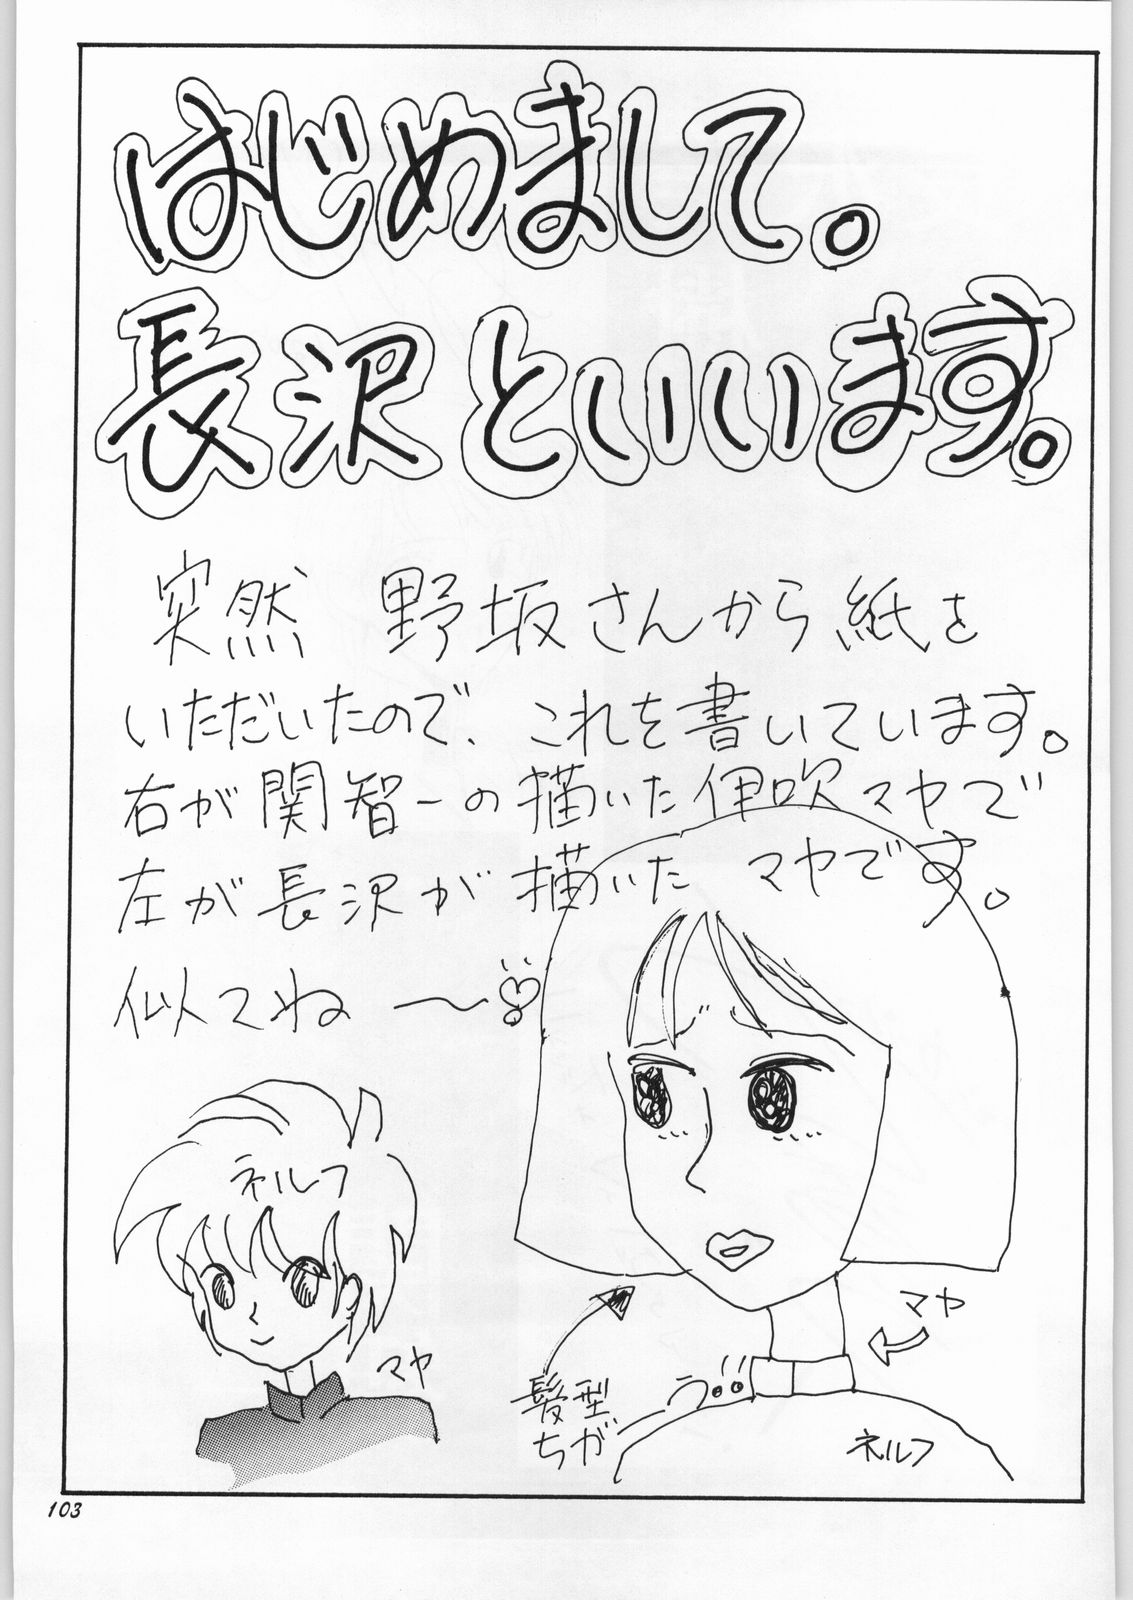 はじめまして。
長沢といいます。
突然 野坂さんから紙を
いただいたので、これを書いています。
右が関智一の描いた伊吹マヤで
左が長沢が描いた マヤです。
似てね〜♡
ネルフ
マヤ
マヤ
髪型
ちがーう!!
ネルフ
103